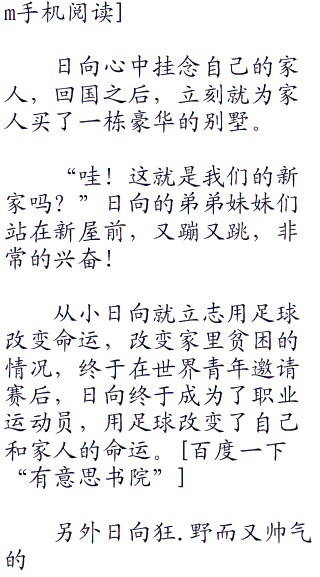 m手机阅读]
日向心中挂念自己的家
人，回国之后，立刻就为家
人买了一栋豪华的别墅。
“哇！这就是我们的新
家吗？”日向的弟弟妹妹们
站在新屋前，又蹦又跳，非
常的兴奋！
从小日向就立志用足球
改变命运，改变家里贫困的
情况，终于在世界青年邀请
赛后，日向终于成为了职业
运动员，用足球改变了自己
和家人的命运。[百度一下
“有意思书院”]
另外日向狂.野而又帅气
的